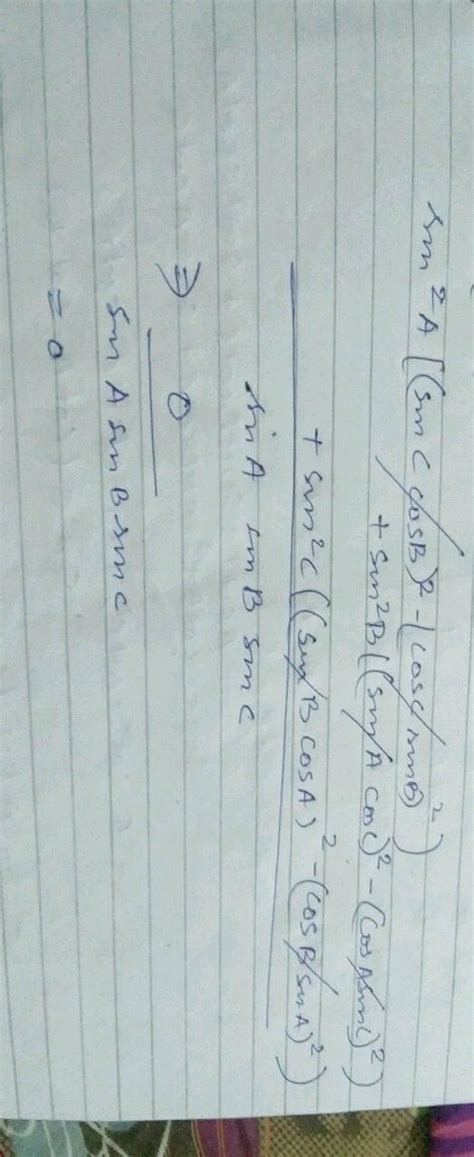 sin²A [(sin C cos B)² - (cos C sin B)²)
+ sin²B ((sin A cos C)² - (cos A sin C)²)
+ sin²C ((sin B cos A)² - (cos B sin A)²)
sin A sin B sin C
⇒ 0
sin A sin B sin C
= 0